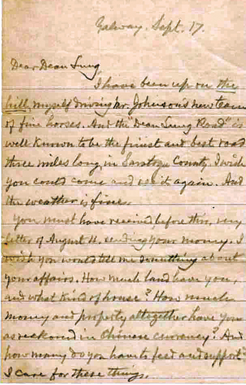 Galway, Sept. 17.
Dear Dean Lung
I have been up on the
hill myself driving Mr. Johnson's new team
of five horses. And the "Dean Lung Road" is
well known to be the finest and best road
three miles long, in Saratoga County. I wish
you could come and see it again. And
the weather is fine.
You must have received before this, my
letter of August 4, sending your money. I
wish you would tell me something about
your affairs. How much land have you,
and what kind of house? How much
money and property altogether have you
as reckoned in Chinese currency? And
how many do you have to feed and support?
I care for these things.